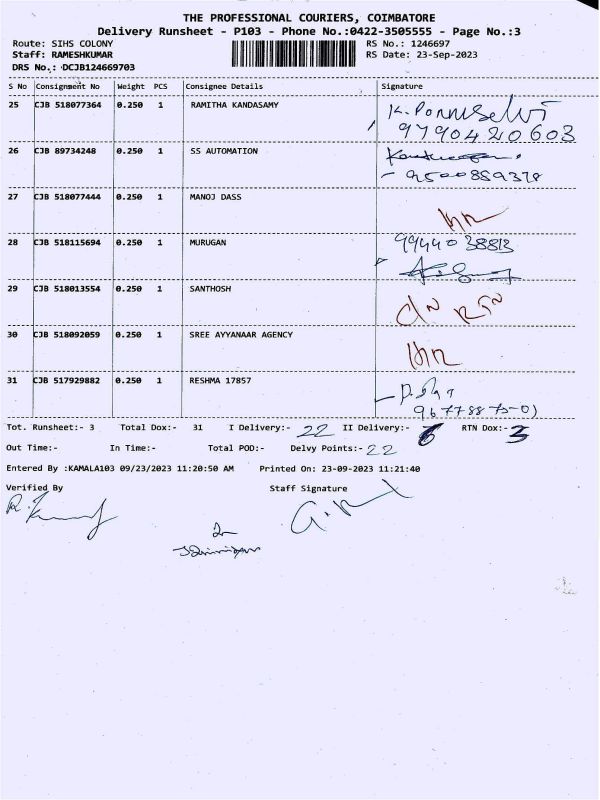 THE PROFESSIONAL COURIERS, COIMBATORE
Delivery Runsheet - P103 - Phone No.:0422-3505555 - Page No.:3
Route: SIHS COLONY RS No.: 1246697
Staff: RAMESHKUMAR RS Date: 23-Sep-2023
DRS No.: DCJB124669703
S No Consignment No Weight PCS Consignee Details Signature
25 CJB 518077364 0.250 1 RAMITHA KANDASAMY K. Ponnuselvi
9790420603
26 CJB 89734248 0.250 1 SS AUTOMATION
9500859378
27 CJB 518077444 0.250 1 MANOJ DASS
28 CJB 518115694 0.250 1 MURUGAN 9944038813
29 CJB 518013554 0.250 1 SANTHOSH
30 CJB 518092059 0.250 1 SREE AYYANAAR AGENCY
31 CJB 517929882 0.250 1 RESHMA 17857
Tot. Runsheet:- 3 Total Dox:- 31 I Delivery:- 22 II Delivery:- 6 RTN Dox:- 3
Out Time:- In Time:- Total POD:- Delvy Points:- 22
Entered By :KAMALA103 09/23/2023 11:20:50 AM Printed On: 23-09-2023 11:21:40
Verified By Staff Signature